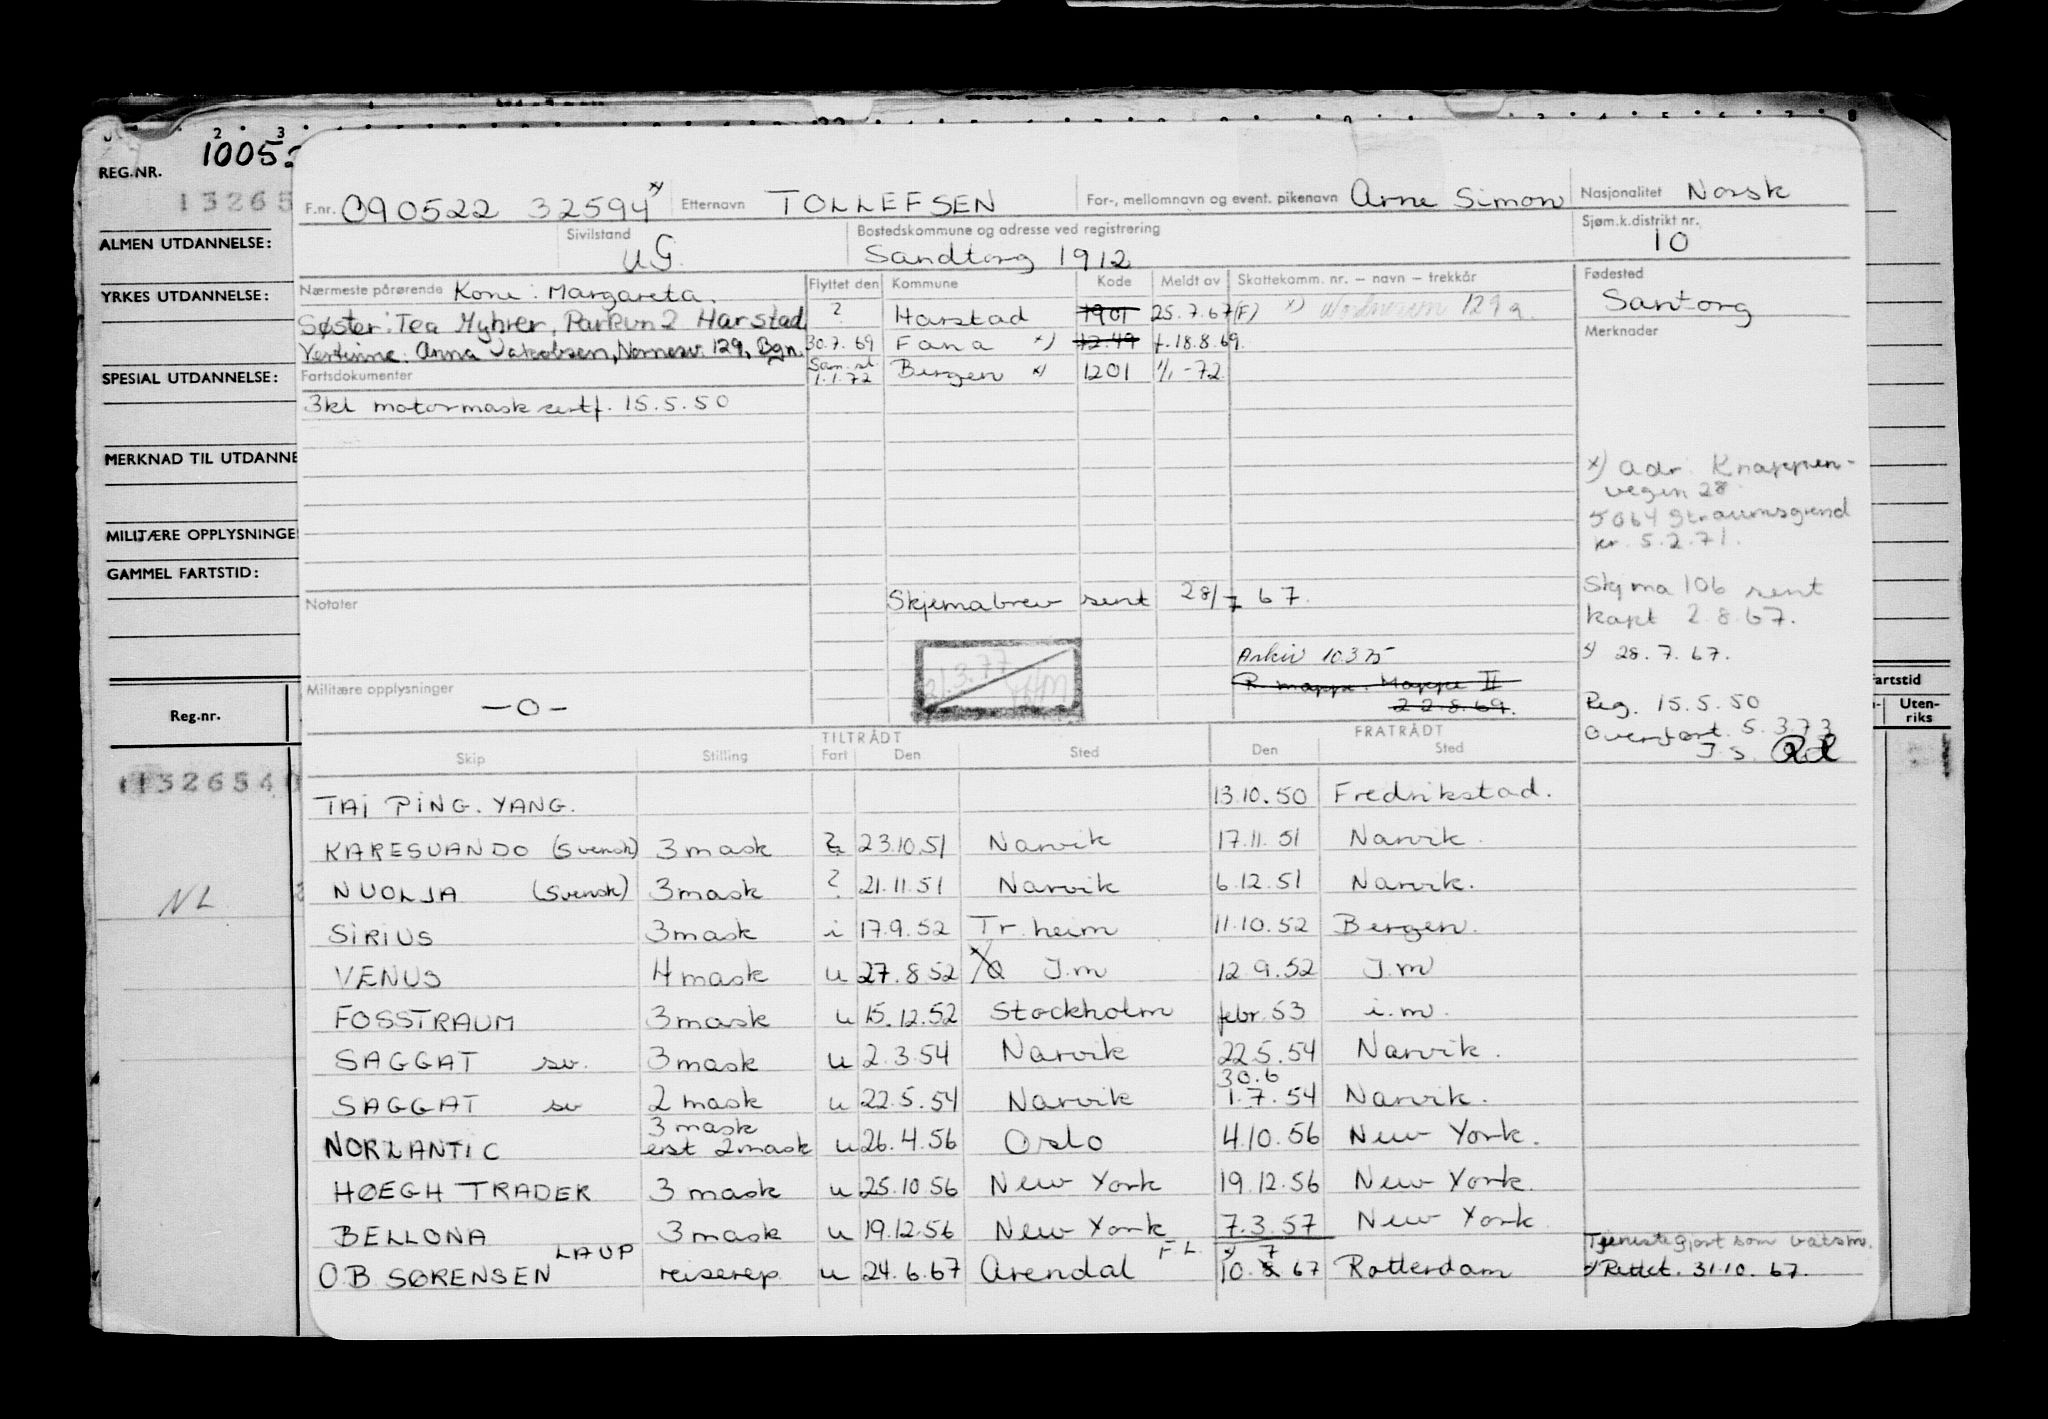 2 3
REG.NR. 1005
13265
ALMEN UTDANNELSE:
YRKES UTDANNELSE:
SPESIAL UTDANNELSE:
MERKNAD TIL UTDANNE
MILITÆRE OPPLYSNINGE
GAMMEL FARTSTID:
Reg.nr.
1326540
NL
F.nr. 090522 32594 x) Etternavn TOLLEFSEN For-, mellomnavn og event. pikenavn Arne Simon Nasjonalitet Norsk
Sivilstand UG Bostedskommune og adresse ved registrering Sandtorg 1912 Sjøm.k.distrikt nr. 10
Nærmeste pårørende Kone: Margareta. Flyttet den Kommune Kode Meldt av Skattekomm. nr. - navn - trekkår Fødested Santorg
Søster: Tea Myhrer, Parkvn 2 Harstad ? Harstad 1901 25.7.67(F) x) 129 a
Vertinne: Anna Jakobsen, Nornesv. 129, Bgn. 30.7.69 Fana x) 12.49 f. 18.8.69. Merknader
Fartsdokumenter 1.1.72 Bergen x) 1201 1/1-72
3kl motormask sertf. 15.5.50
x) adr. Knappen-
vegen 28
5064 Straumsgrend
kr. 5.2.71.
Skjema 106 sent
kapt 2.8.67.
x) 28.7.67.
Reg. 15.5.50
Overført. 5.3.73
J.S.
Notater Skjemabrev sent 28/7 67.
21.3.77
Arkiv 10375
R mappe. Mappe II
22.8.69.
Militære opplysninger -0-
TILTRÅDT FRATRÅDT
Skip Stilling Fart Den Sted Den Sted
TAI PING. YANG. 13.10.50 Fredrikstad.
KARESUANDO (Svensk) 3 mask ? 23.10.51 Narvik 17.11.51 Narvik.
NUOLJA (Svensk) 3 mask ? 21.11.51 Narvik 6.12.51 Narvik.
SIRIUS 3 mask i 17.9.52 Tr.heim 11.10.52 Bergen.
VENUS 4 mask u 27.8.52 I.m 12.9.52 I.m
FOSSTRAUM 3 mask u 15.12.52 Stockholm febr. 53 i.m.
SAGGAT sv. 3 mask u 2.3.54 Narvik 22.5.54 Narvik.
30.6
SAGGAT sv 2 mask u 22.5.54 Narvik 1.7.54 Narvik.
3 mask
NORLANTIC est 2 mask u 26.4.56 Oslo 4.10.56 New York.
HØEGH TRADER 3 mask u 25.10.56 New York 19.12.56 New York.
BELLONA 3 mask u 19.12.56 New York 7.3.57 New York
LAUP F.L. x) 7 Tjenestegjort som båtsm.
O.B. SØRENSEN reiserep. u 24.6.67 Arendal 10.8 67 Rotterdam x) Rettet. 31.10.67.
artstid
Uten-
riks